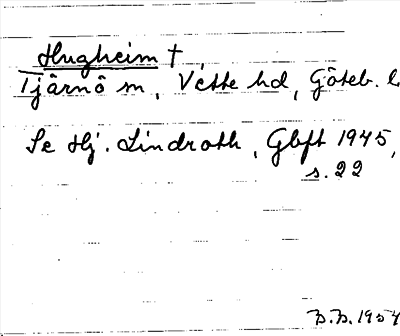 Hugheim †
Tjärnö sn, Vette hd, Göteb. l.
Se Hj. Lindroth, Gbft 1945,
s. 22
B.B. 1954